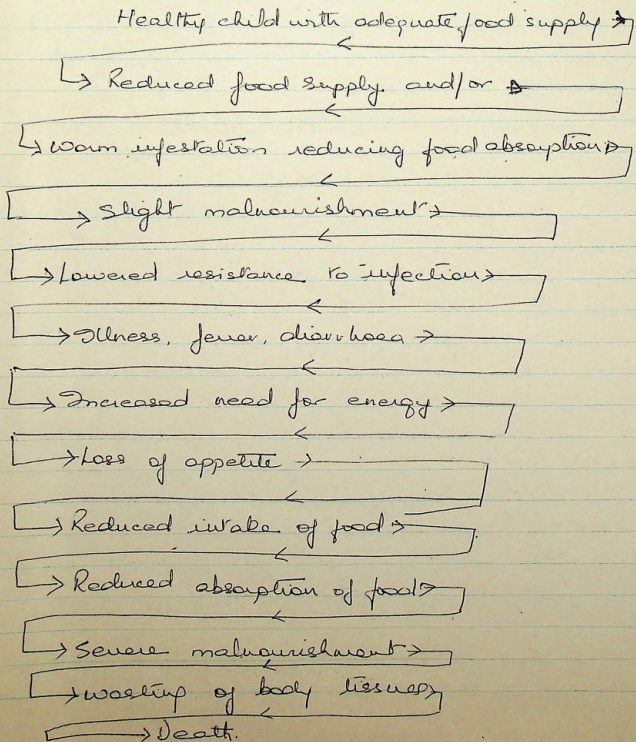 Healthy child with adequate food supply
Reduced food supply. and/or
worm infestation reducing food absorption
Slight malnourishment
Lowered resistance to infection
Illness, fever, diarrhoea
Increased need for energy
Loss of appetite
Reduced intake of food
Reduced absorption of food
Severe malnourishment
wasting of body tissues
Death.